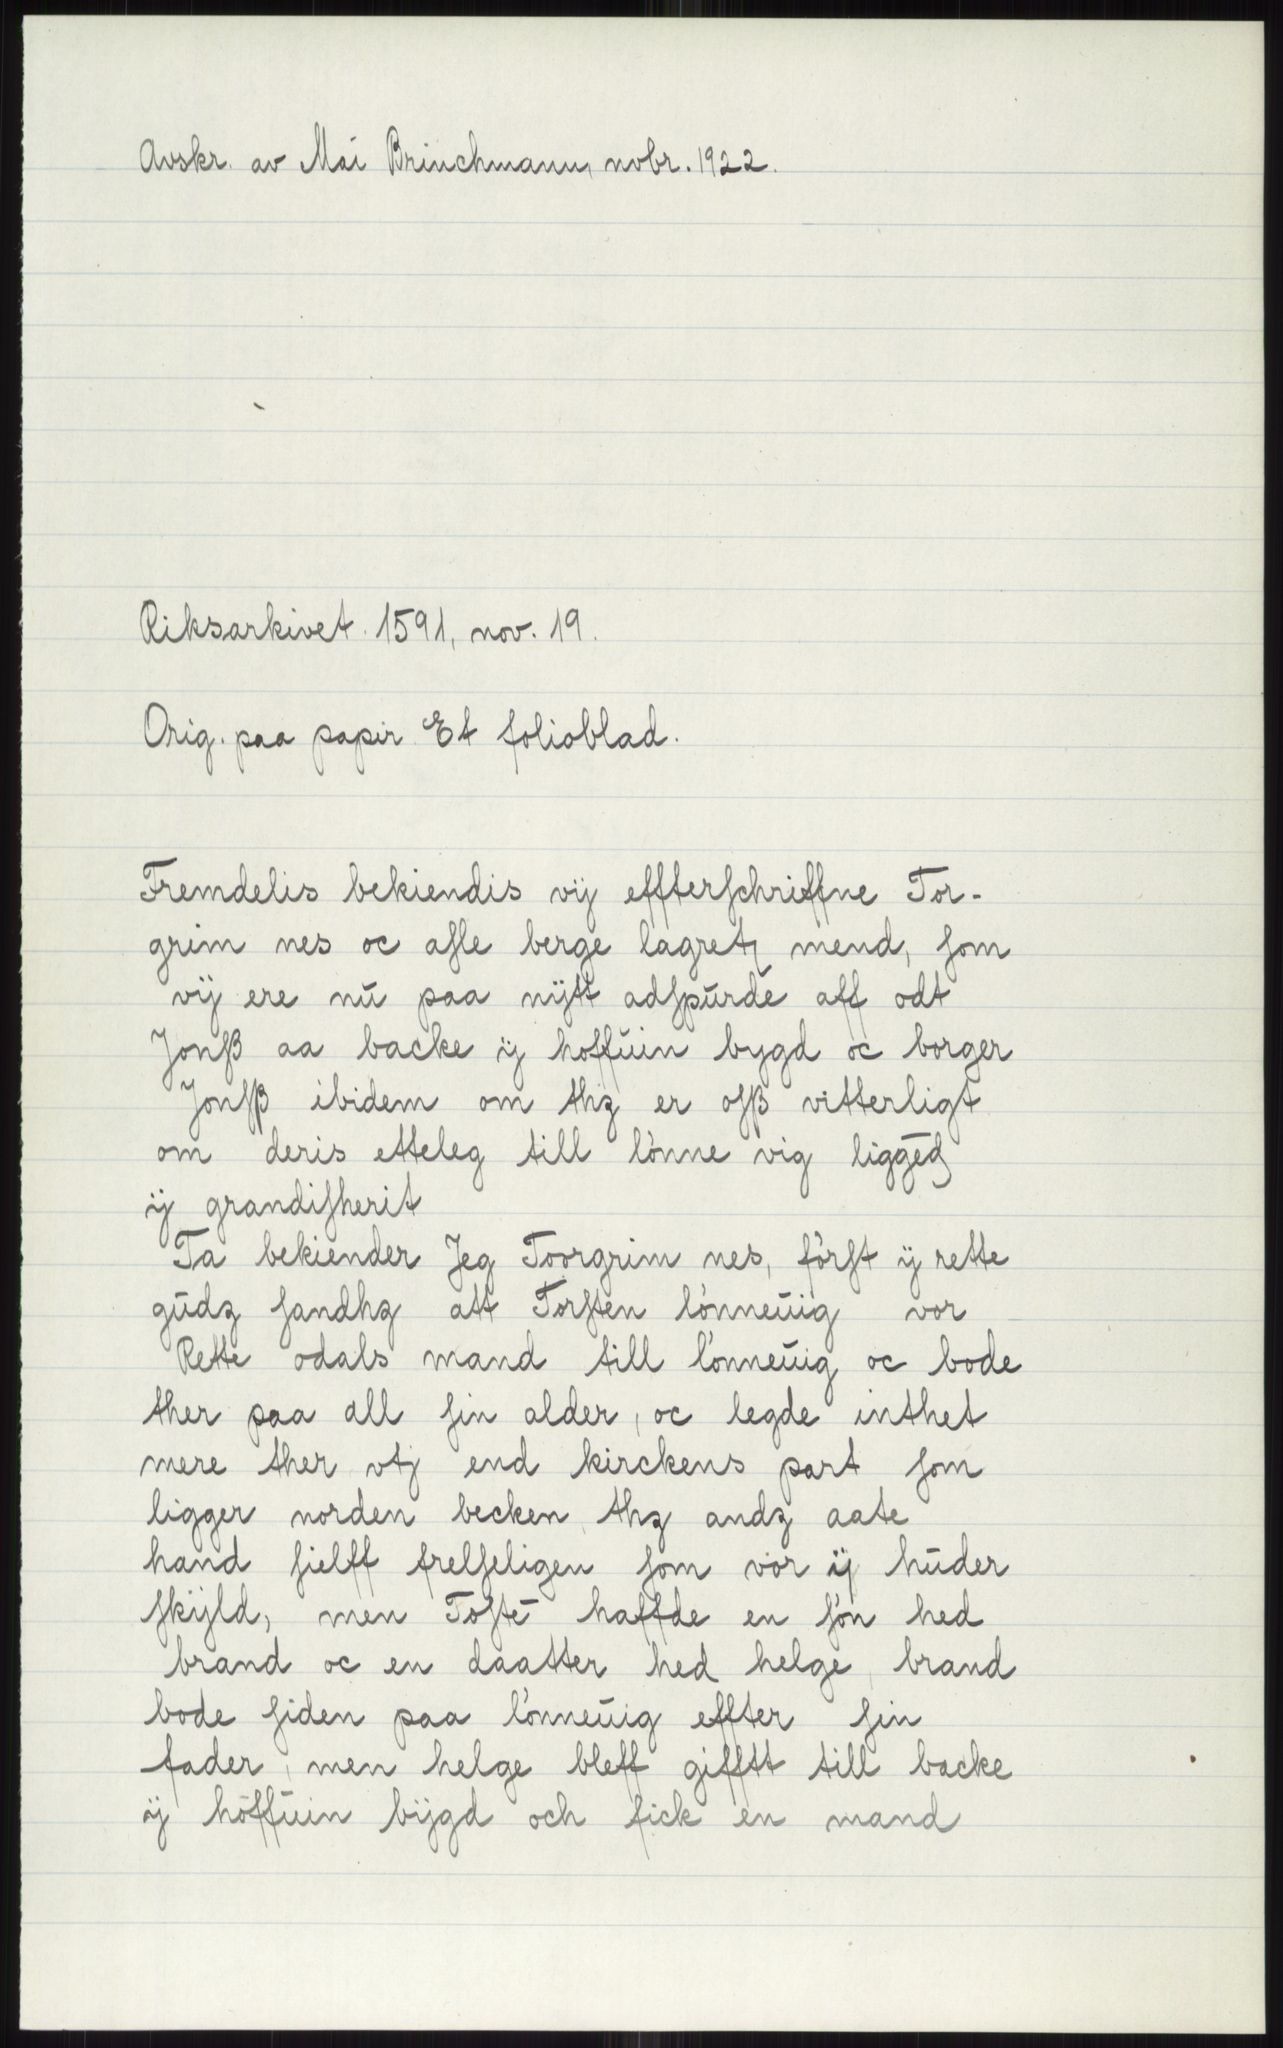 Avskr. av Mai Brinchmann, nobr. 1922.
Riksarkivet. 1591, nov. 19.
Orig. paa papir. Et folioblad.
Fremdelis bekiendis vij effterſchriffne Tor-
grim nes oc aſle berge lagretʒ mend, ſom
vij ere nū paa nÿtt adſpūrde aff odt
Jonſß aa backe ÿ hoffūin bygd oc borger
Jonſß ibidem om thʒ er oſß vitterligt
om deris etteleg till lönne vig liggēdʒ
ÿ grandiſherit
Ta bekiender Jeg Toorgrim nes, förſt ÿ rette
gūdʒ ſandhʒ att Torſten lönneūig vor
Rette odals mand till lönneūig oc bode
ther paa all ſin alder, oc legde inthet
mere ther vtj end kirckens part ſom
ligger norden becken, thʒ andʒ aate
hand ſielff frelſeligen ſom vor ÿ hūder
ſkÿld, men Toſtē haffde en ſön hed
brand oc en daatter hed helge, brand
bode ſiden paa lönneūig effter ſin
fader, men helge bleff gifftt till backe
ÿ höffūin bÿgd och fick en mand